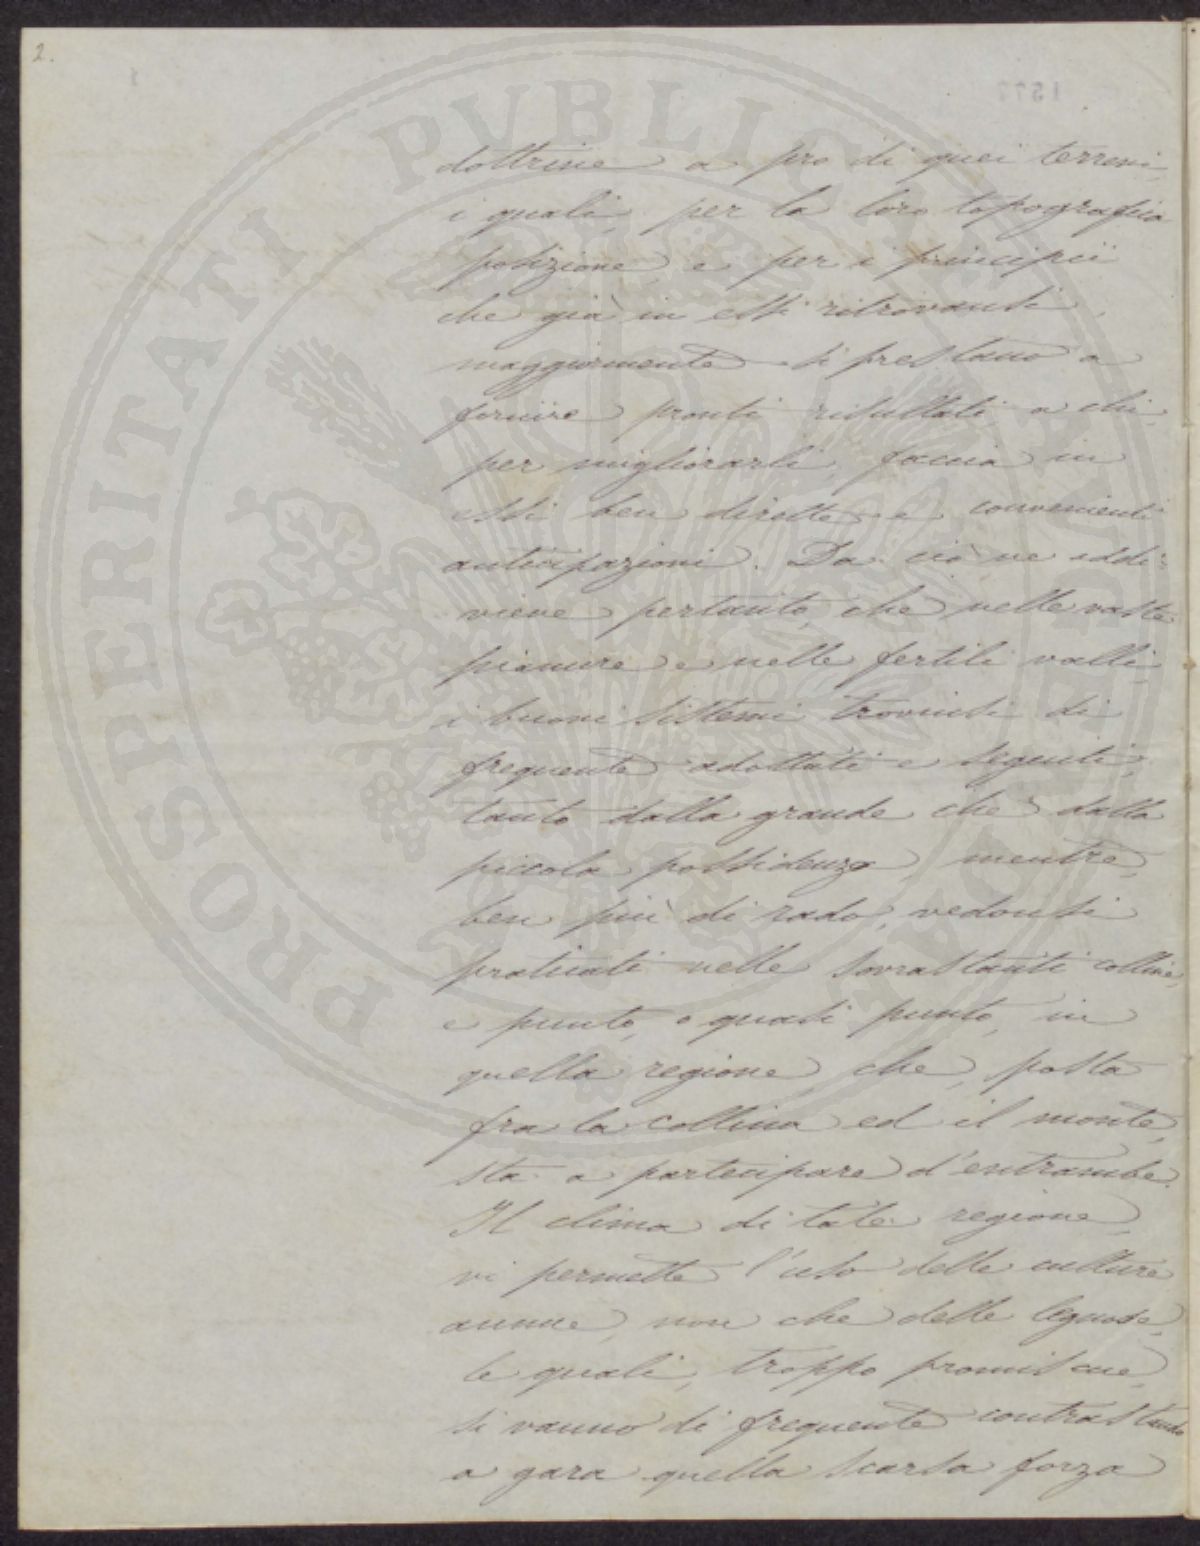 2.
dottrine a pro di quei terreni,
i quali, per la loro topografica
posizione, e per i principii
che già in essi ritrovansi,
maggiormente si prestano a
fornire pronti risultati a chi,
per migliorarli, faccia in
essi ben dirette e convenienti
anticipazioni. Da ciò ne addi:
viene pertanto, che nelle vaste
pianure e nelle fertili valli,
i buoni sistemi trovinsi di
frequente adottati e seguiti,
tanto dalla grande che dalla
piccola possidenza, mentre,
ben più di rado, vedonsi
praticati nelle sovrastanti colline,
e punto, o quasi punto, in
quella regione, che, posta
fra la collina ed il monte,
sta a partecipare d'entrambe.
Il clima di tale regione,
vi permette l'uso delle culture
annue, non che delle legnose,
le quali, troppo promiscue,
si vanno di frequente contrastando
a gara quella scarsa forza
PROSPERITATI PVBLICAE AVGENDAE